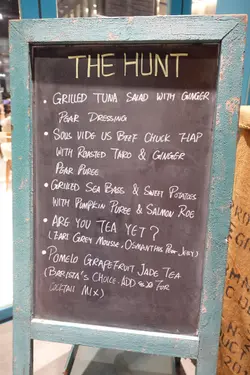 THE HUNT
• GRILLED TUNA SALAD WITH GINGER
PEAR DRESSING
• SOUS VIDE US BEEF CHUCK FLAP
WITH ROASTED TARO & GINGER
PEAR PUREE
• GRILLED SEA BASS & SWEET POTATOES
WITH PUMPKIN PUREE & SALMON ROE
• ARE YOU TEA YET?
(EARL GREY MOUSSE, OSMANTHUS PEAR JELLY)
• POMELO GRAPEFRUIT JADE TEA
(BARISTA'S CHOICE. ADD FOR
COCKTAIL MIX)